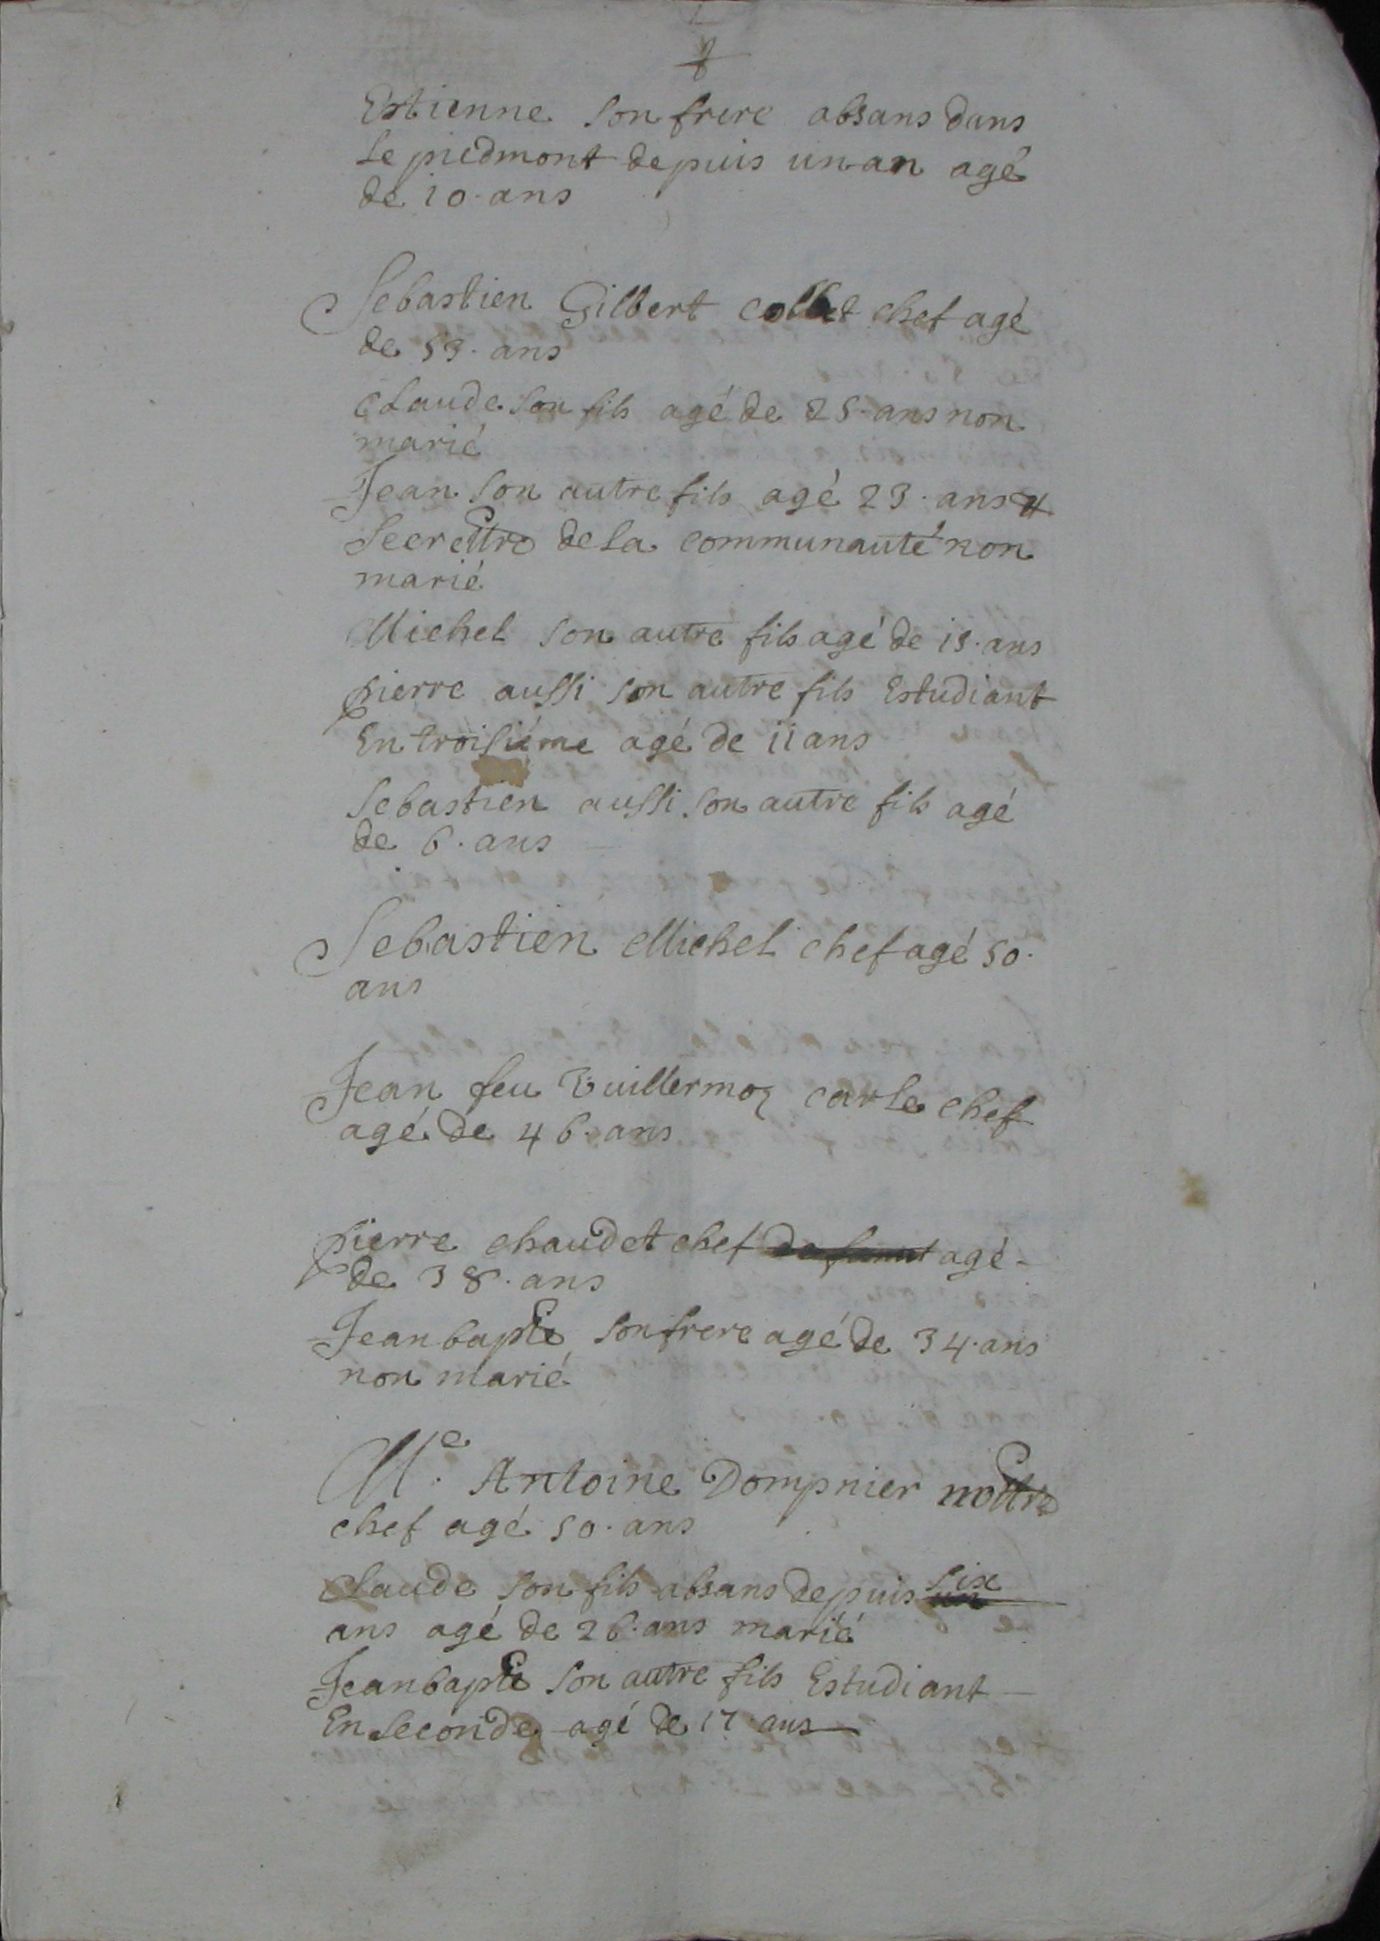 Estienne son frere absans dans
Le piedmont depuis un an agé
de 10 ans
Sebastien Gilbert collet chef agé
de 53 ans
Claude son fils agé de 25 ans non
marié
Jean son autre fils agé 23 ans et
Secrettre de La communauté non
marié
Michel son autre fils agé de 15 ans
pierre aussi son autre fils Estudiant
En troisiéme agé de 11 ans
Sebastien aussi son autre fils agé
de 6 ans
Sebastien Michel chef agé 50
ans
Jean feu Vuillermoz carle chef
agé de 46 ans
pierre chaudet chef agé
de 38 ans
Jean bapte son frere agé de 34 ans
non marié
Me Antoine Dompnier nottre
chef agé 50 ans
Claude son fils absans depuis six
ans agé de 26 ans marié
Jean bapte son autre fils Estudiant
En Seconde agé de 17 ans